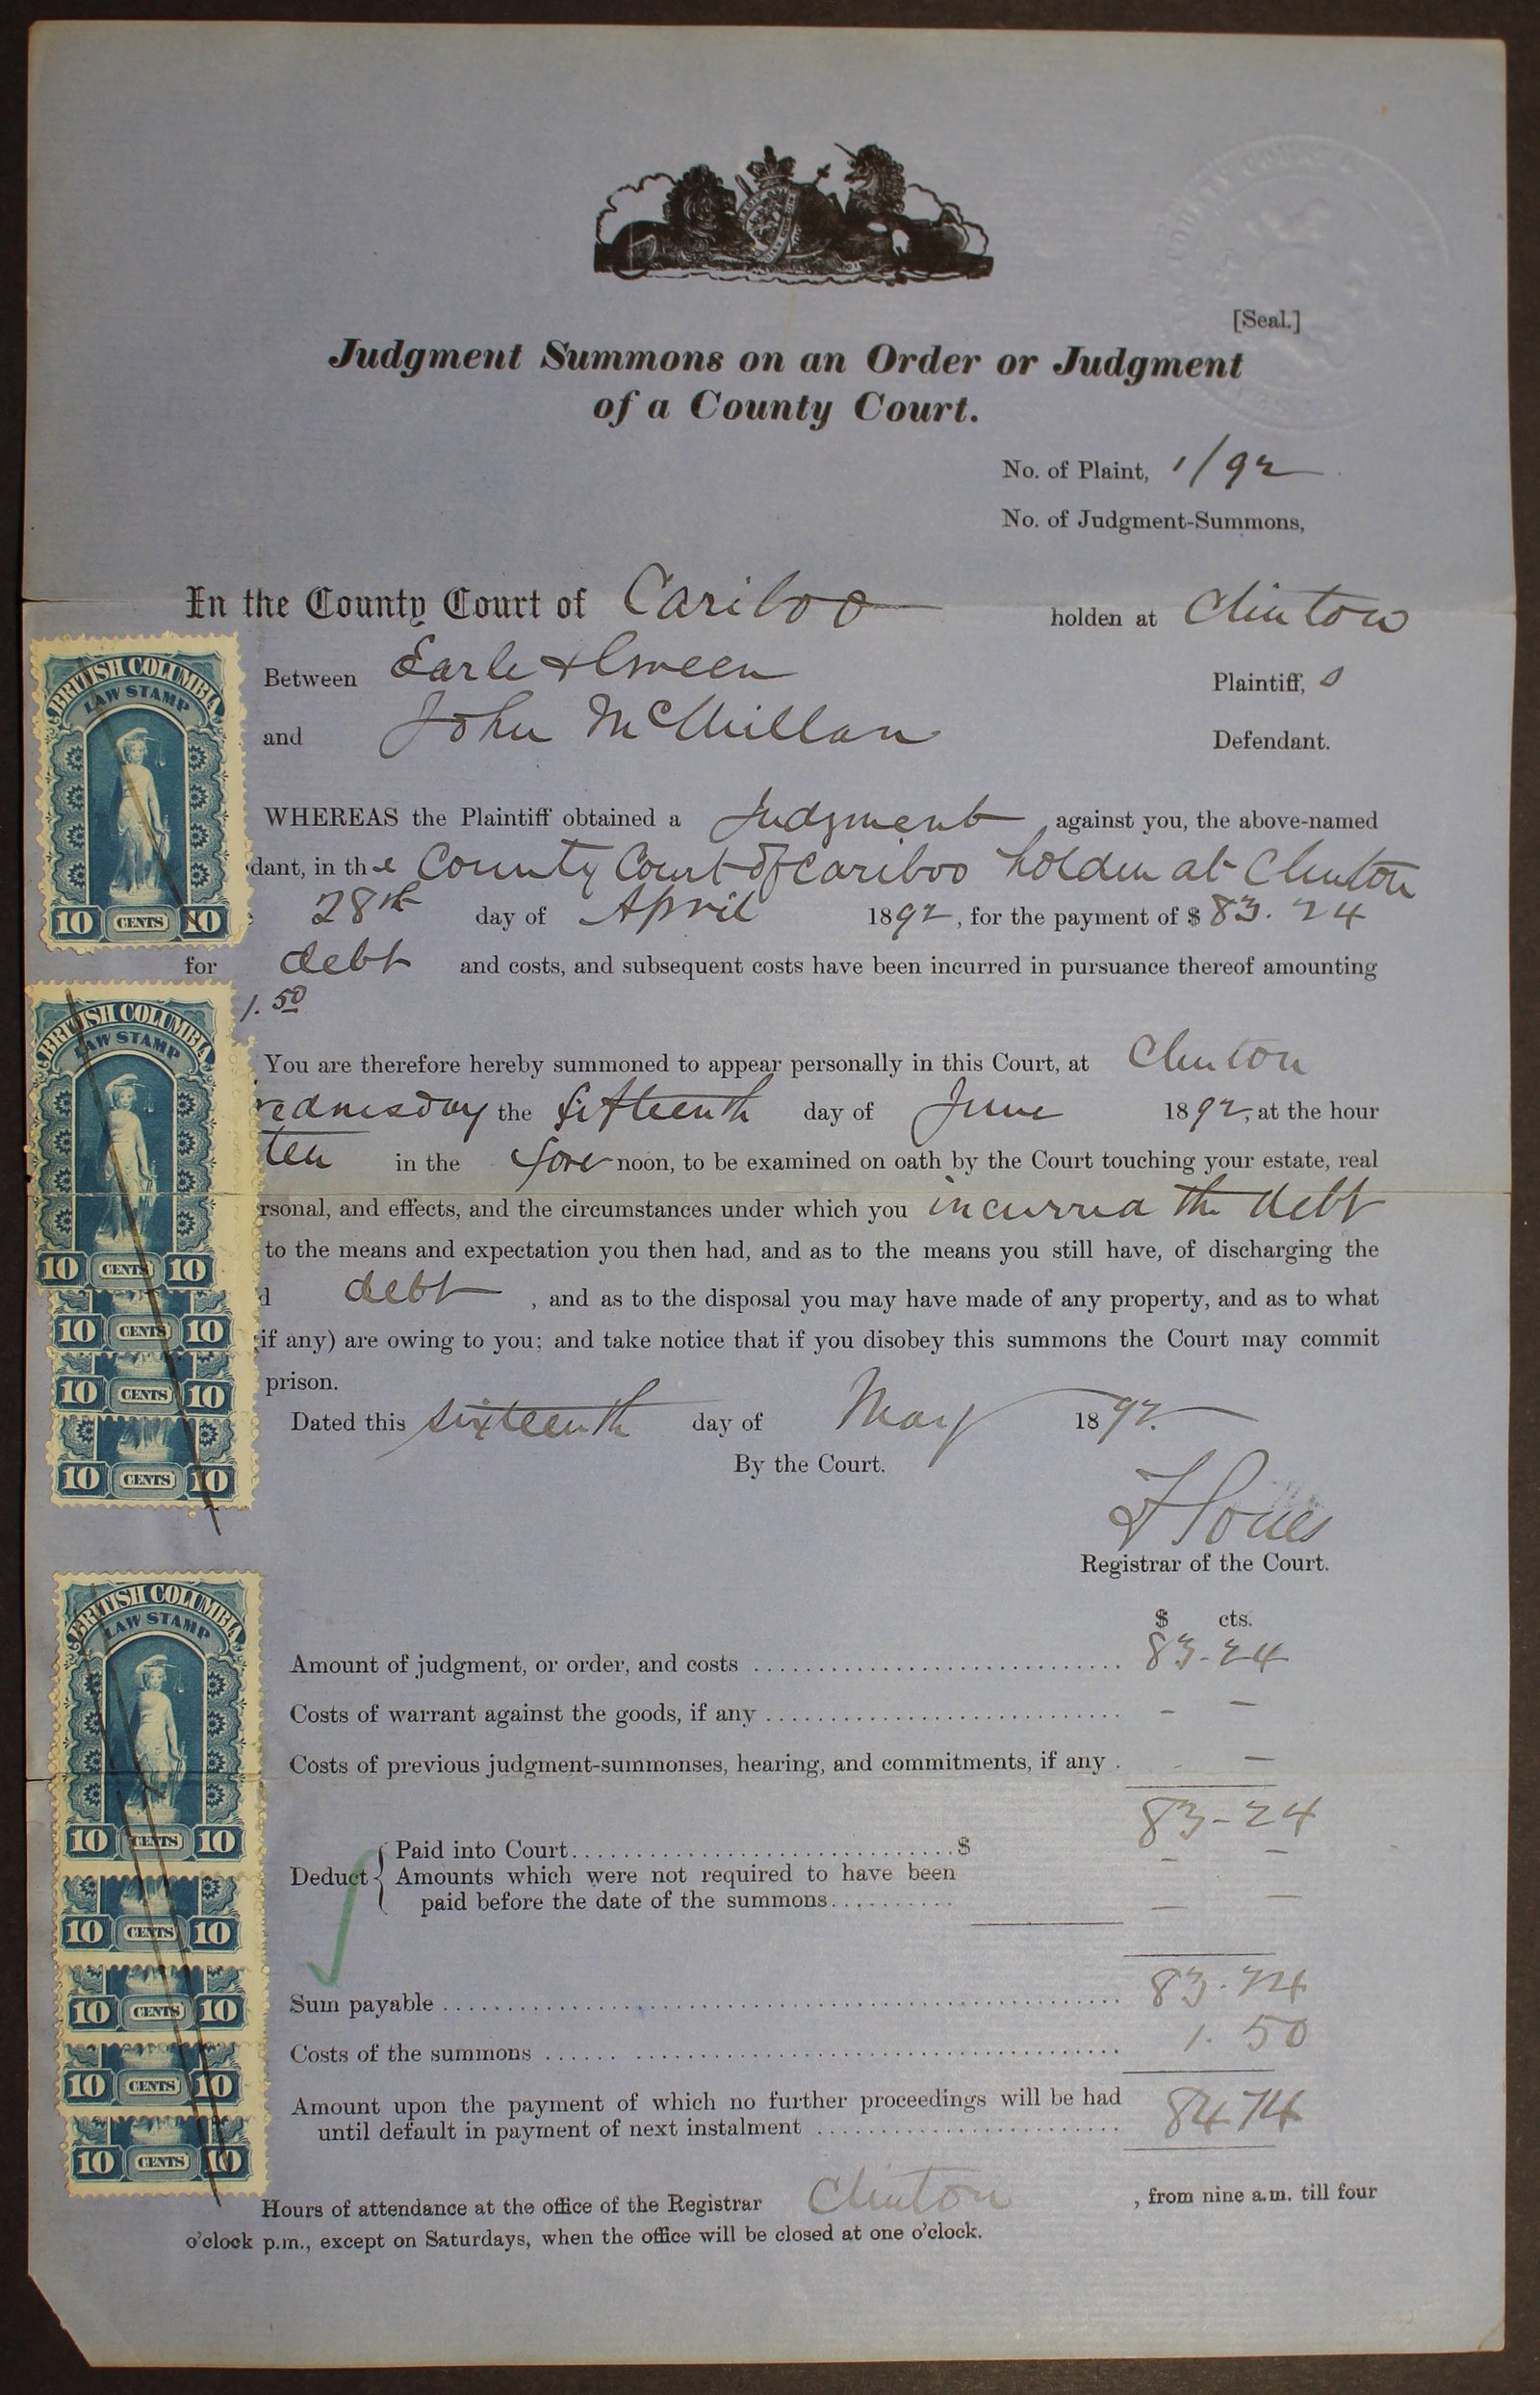 [Seal.]
Judgment Summons on an Order or Judgment
of a County Court.
No. of Plaint, 1/92
No. of Judgment-Summons,
In the County Court of Cariboo holden at Clinton
BRITISH COLUMBIA
LAW STAMP
10 CENTS 10
Between Earle & Plaintiff, s
and John McMillan Defendant.
WHEREAS the Plaintiff obtained a Judgment against you, the above-named
dant, in the County Court of Cariboo holden at Clinton
28th day of April 1892, for the payment of $ 83.24
for debt and costs, and subsequent costs have been incurred in pursuance thereof amounting
1.50
BRITISH COLUMBIA
LAW STAMP
10 CENTS 10
10 CENTS 10
10 CENTS 10
10 CENTS 10
You are therefore hereby summoned to appear personally in this Court, at Clinton
ednesday the fifteenth day of June 1892, at the hour
ten in the fore noon, to be examined on oath by the Court touching your estate, real
rsonal, and effects, and the circumstances under which you incurred the debt
to the means and expectation you then had, and as to the means you still have, of discharging the
d debt , and as to the disposal you may have made of any property, and as to what
if any) are owing to you; and take notice that if you disobey this summons the Court may commit
prison.
Dated this sixteenth day of May 1892.
By the Court.
Registrar of the Court.
BRITISH COLUMBIA
LAW STAMP
10 CENTS 10
10 CENTS 10
10 CENTS 10
10 CENTS 10
10 CENTS 10
$ cts.
Amount of judgment, or order, and costs 83-24
Costs of warrant against the goods, if any - -
Costs of previous judgment-summonses, hearing, and commitments, if any . -
83-24
Deduct { Paid into Court $ - -
Amounts which were not required to have been
paid before the date of the summons - -
Sum payable 83.24
Costs of the summons 1.50
Amount upon the payment of which no further proceedings will be had
until default in payment of next instalment 84 74
Hours of attendance at the office of the Registrar Clinton , from nine a.m. till four
o'clock p.m., except on Saturdays, when the office will be closed at one o'clock.